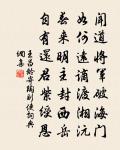 聞道將軍破海門
如何遠謫渡湘沅
春來明主封西岳
自有還君紫綬恩
王昌龄寄陶副使詞典
網集